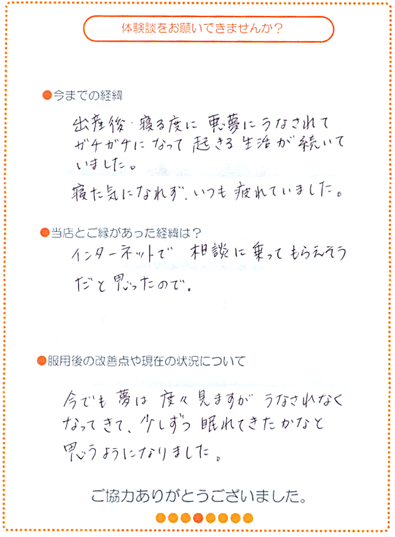 体験談をお願いできませんか？
●今までの経緯
出産後、寝る度に悪夢にうなされて
ガチガチになって起きる生活が続いて
いました。
寝た気になれず、いつも疲れていました。
●当店とご縁があった経緯は？
インターネットで 相談に乗ってもらえそう
だと思ったので。
●服用後の改善点や現在の状況について
今でも夢は度々見ますがうなされなく
なってきて、少しずつ眠れてきたかなと
思うようになりました。
ご協力ありがとうございました。